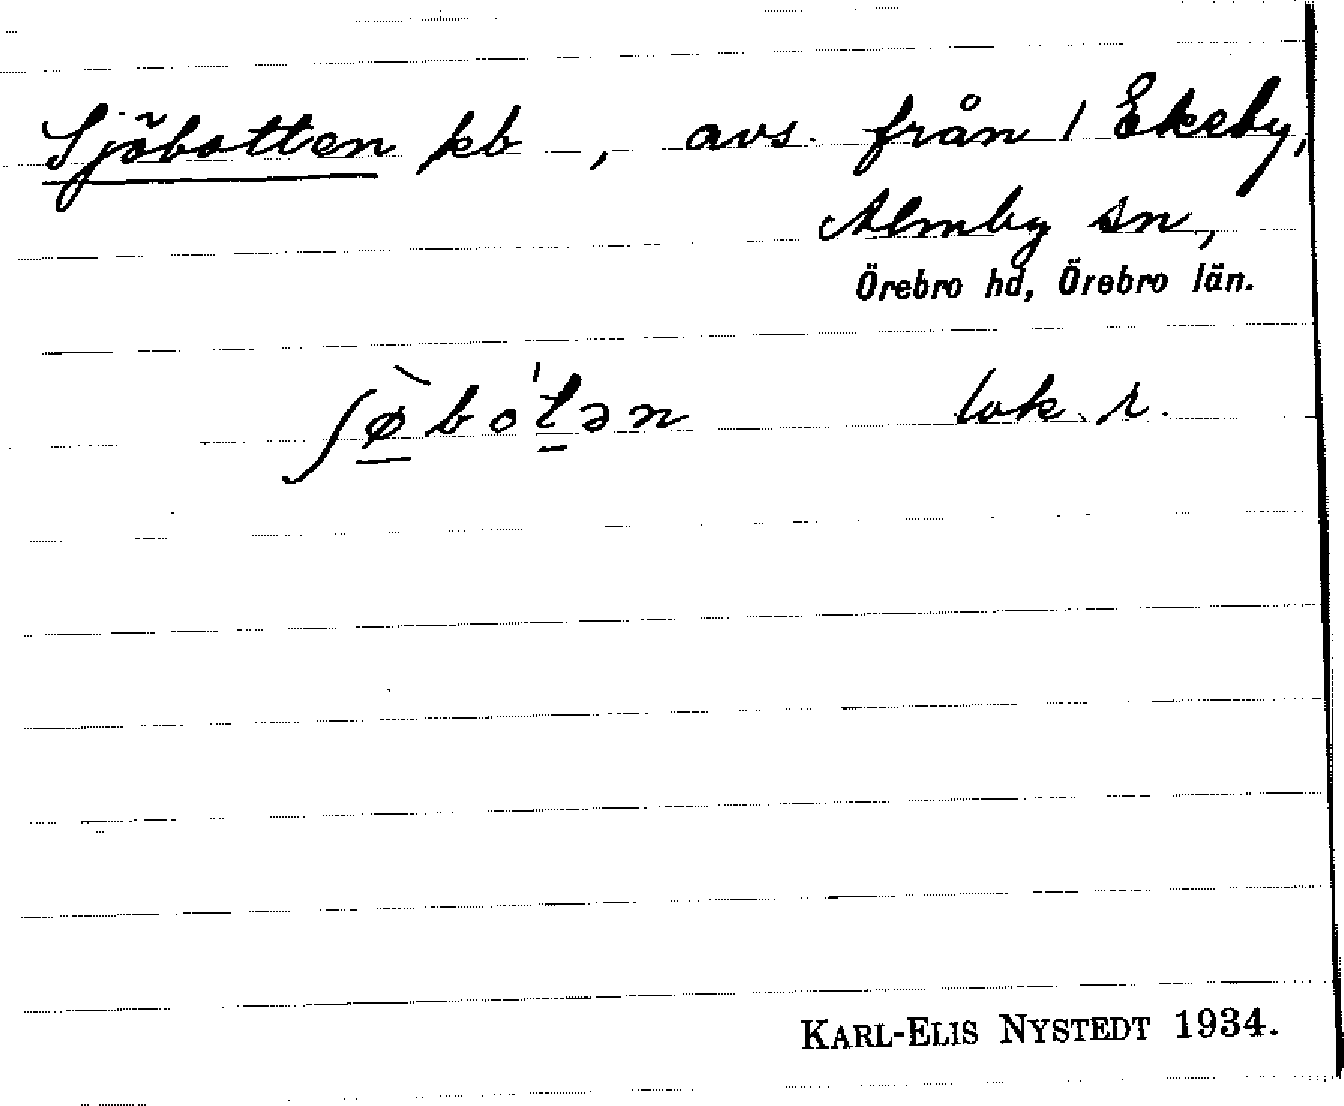 Sjöbotten kb, avs. från 1 Ekeby,
Almby sn,
Örebro hd, Örebro län.
ʃø̀bo'tən lok. r.
KARL-ELIS NYSTEDT 1934.